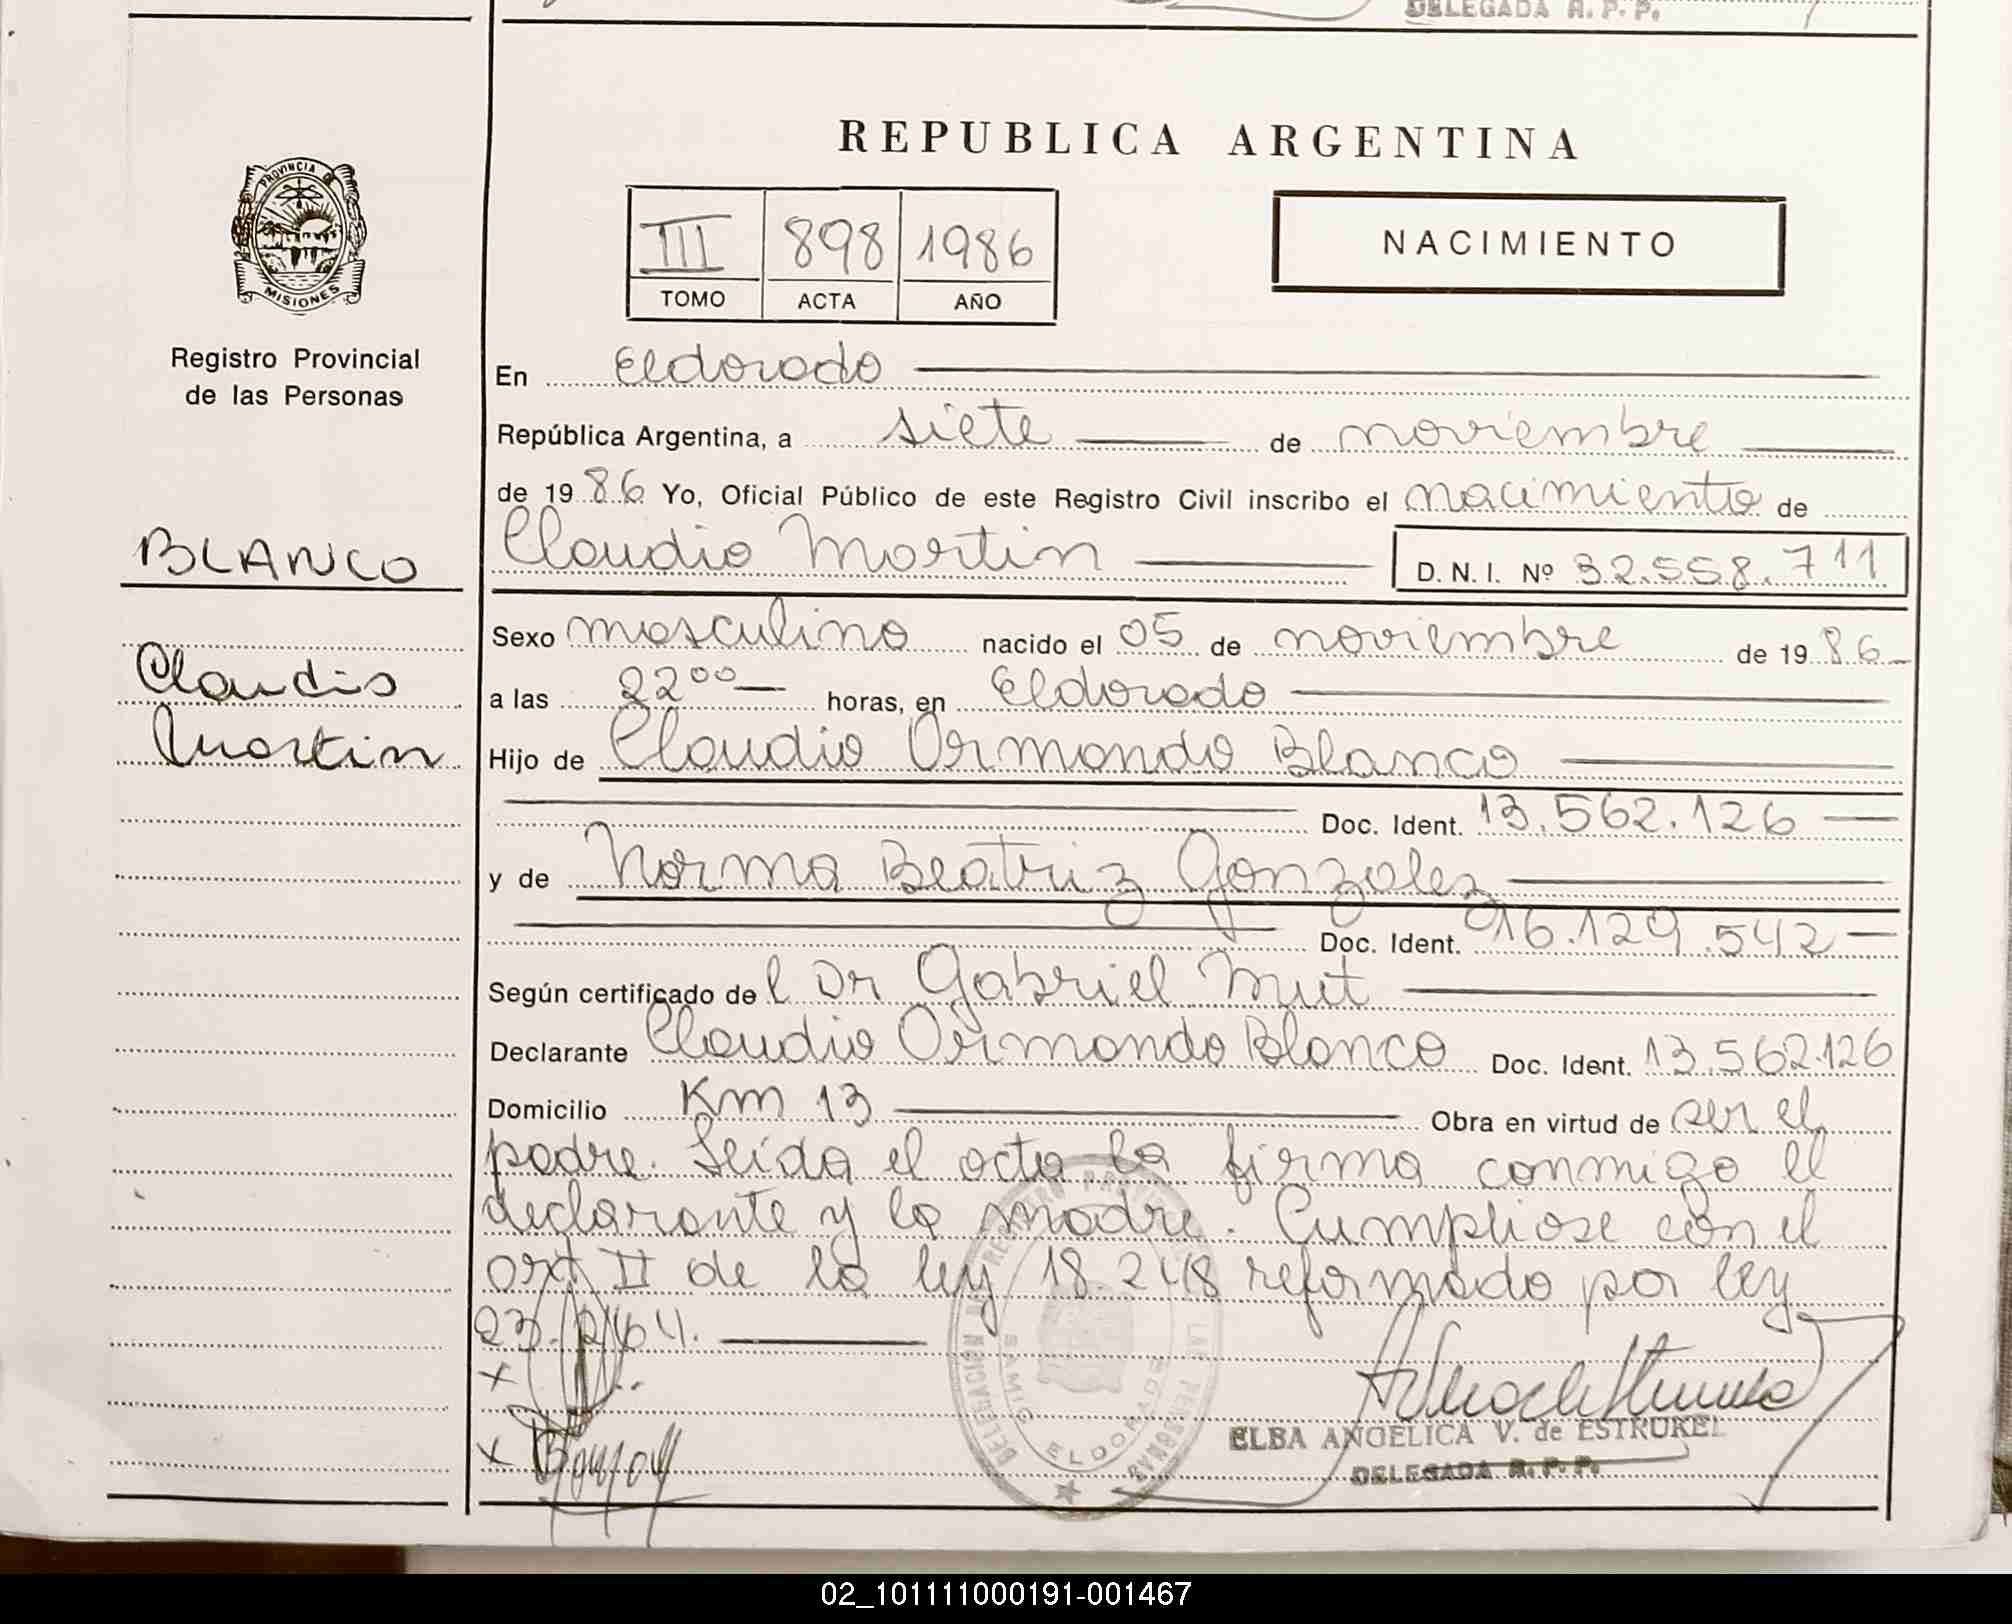 DELEGADA R. P. P.
REPUBLICA ARGENTINA
PROVINCIA DE
MISIONES
III 898 1986
TOMO ACTA AÑO
NACIMIENTO
Registro Provincial
de las Personas
BLANCO
Claudio
Martin
En Eldorado
República Argentina, a siete de noviembre
de 1986 Yo, Oficial Público de este Registro Civil inscribo el nacimiento de
Claudio Martin D. N. I. Nº 32.558.711
Sexo masculino nacido el 05 de noviembre de 1986
a las 22 00 horas, en Eldorado
Hijo de Claudio Ormando Blanco
Doc. Ident. 13.562.126
y de Norma Beatriz Gonzalez
Doc. Ident. 16.129.542
Según certificado del Dr Gabriel
Declarante Claudio Ormando Blanco Doc. Ident. 13.562.126
Domicilio Km 13 Obra en virtud de ser el
padre. Leida el acta la firma conmigo el
declarante y la madre. Cumpliose con el
art II de la ley 18.248 reformado por ley
x
x
SAMIC ELDORADO
ELBA ANGELICA V. de ESTRUKEL
DELEGADA R. P. P.
02_101111000191-001467